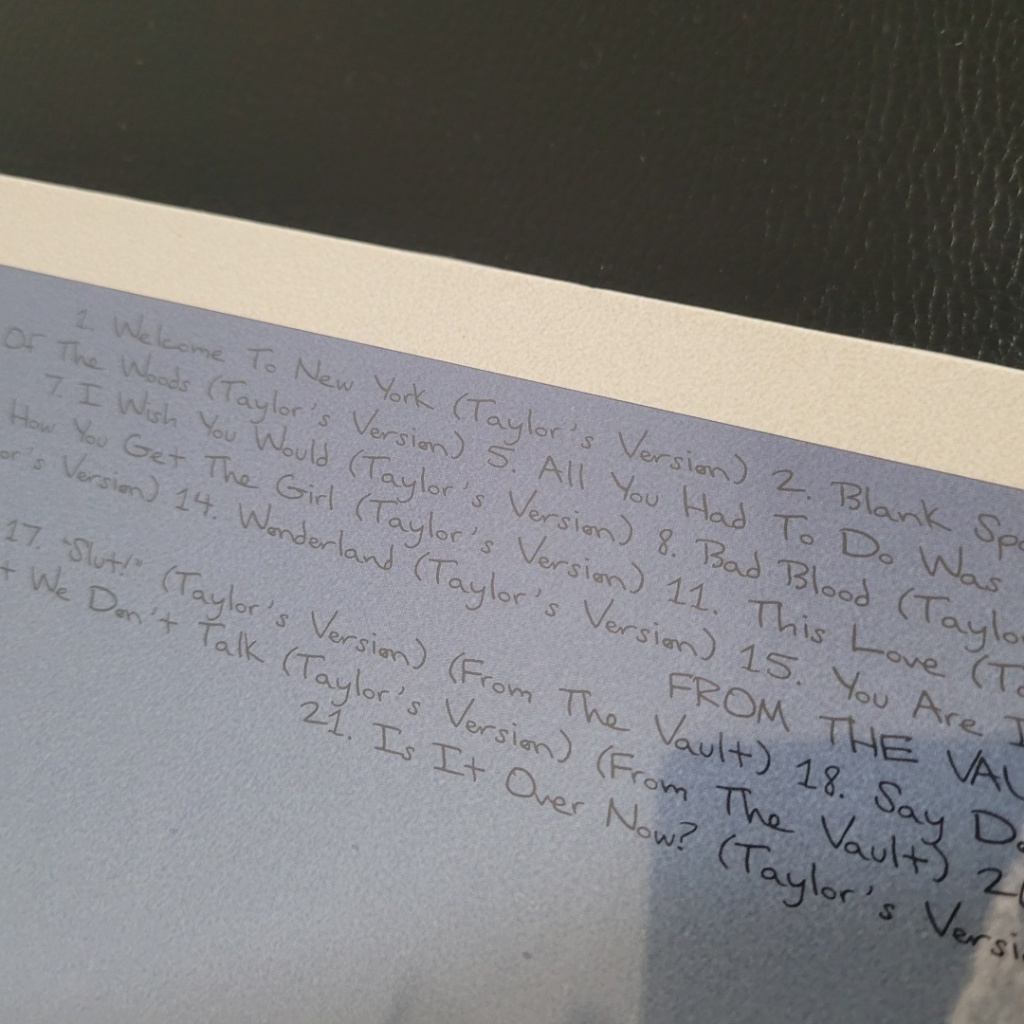 1. Welcome To New York (Taylor's Version) 2. Blank Spa
Of The Woods (Taylor's Version) 5. All You Had To Do Was
7. I Wish You Would (Taylor's Version) 8. Bad Blood (Taylo
How You Get The Girl (Taylor's Version) 11. This Love (Ta
or's Version) 14. Wonderland (Taylor's Version) 15. You Are I
FROM THE VAU
17. "Slut!" (Taylor's Version) (From The Vault) 18. Say Do
t We Don't Talk (Taylor's Version) (From The Vault) 2
21. Is It Over Now? (Taylor's Versi